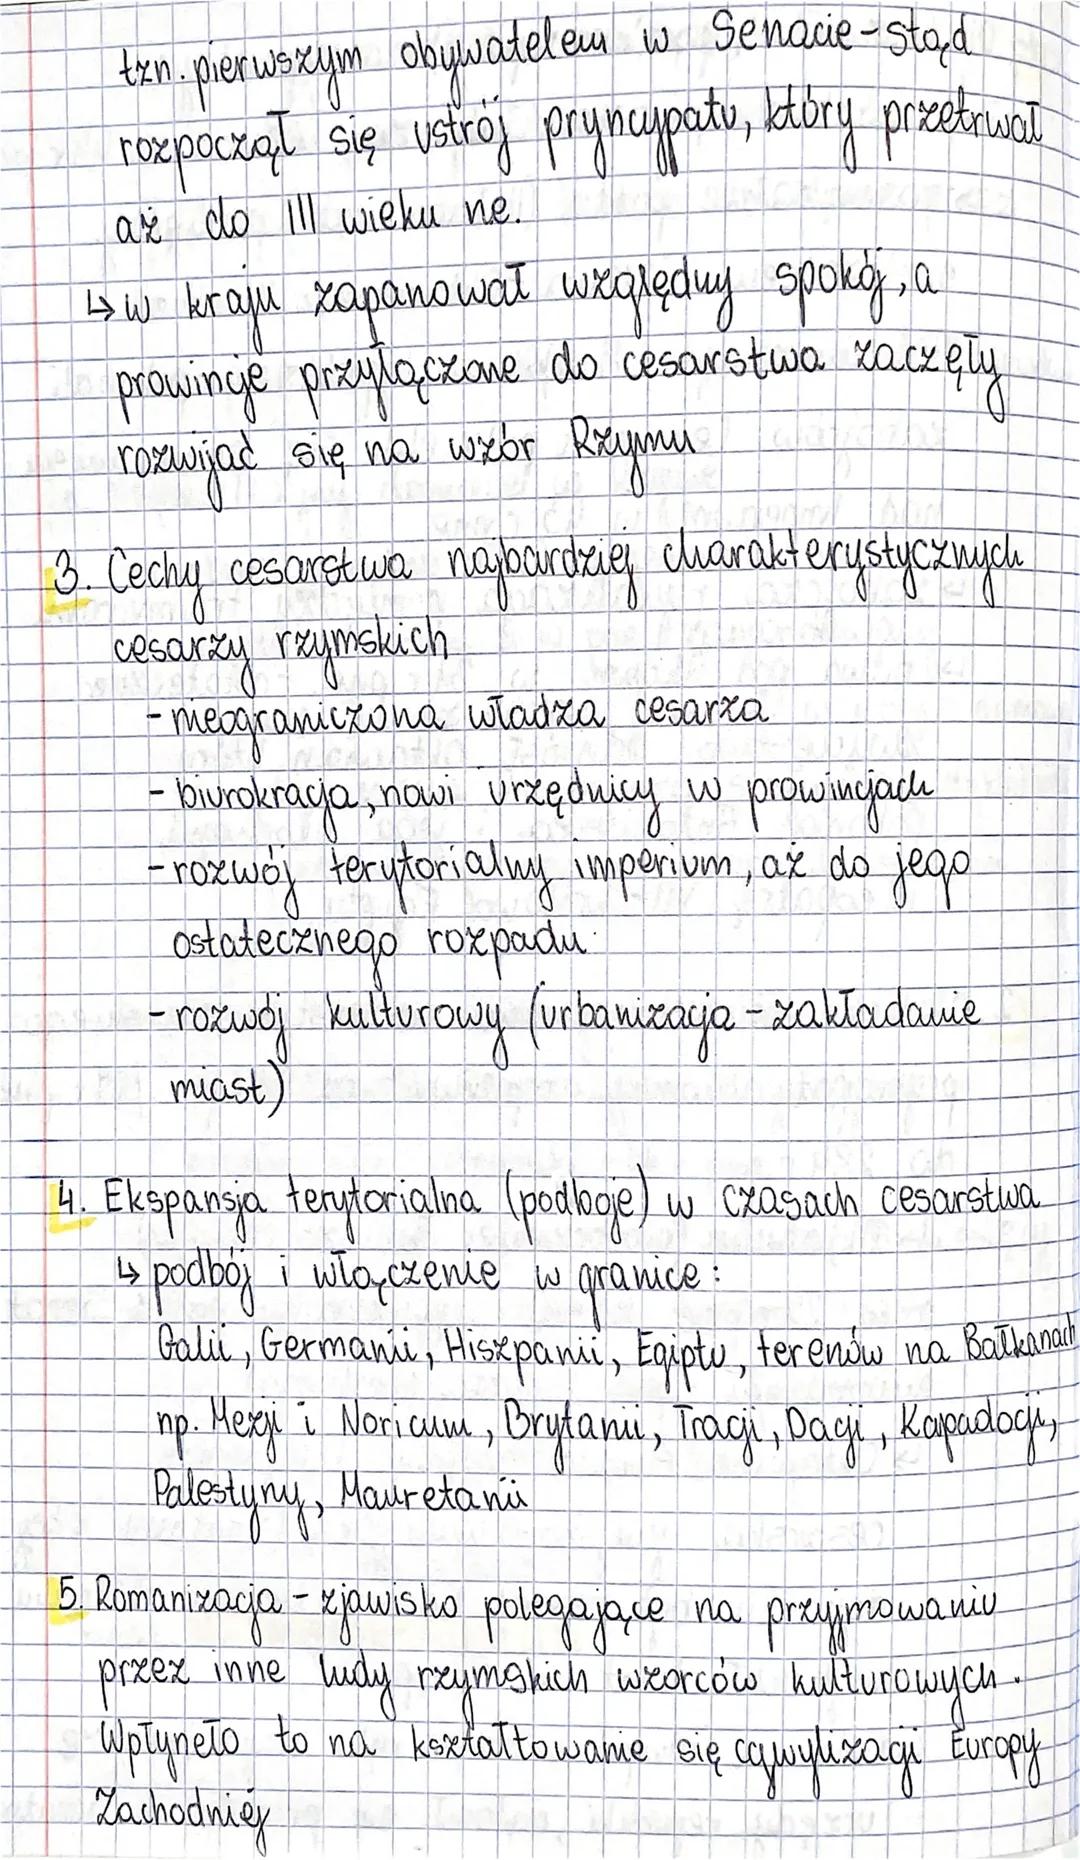 tzn. pierwszym obywatelem w Senacie - stąd
rozpoczął się ustrój pryncypatu, który przetrwał
aż do III wieku ne.
↳ w kraju zapanował względny spokój, a
prowincje przyłączone do cesarstwa zaczęły
rozwijać się na wzór Rzymu
3. Cechy cesarstwa najbardziej charakterystycznych
cesarzy rzymskich
- nieograniczona władza cesarza
- biurokracja, nowi urzędnicy w prowincjach
- rozwój terytorialny imperium, aż do jego
ostatecznego rozpadu
- rozwój kulturowy (urbanizacja - zakładanie
miast)
4. Ekspansja terytorialna (podboje) w czasach cesarstwa
↳ podbój i włączenie w granice:
Galii, Germanii, Hiszpanii, Egiptu, terenów na Bałkanach
np. Mezji i Noricum, Brytanii, Tracji, Dacji, Kapadocji,
Palestyny, Mauretanii
5. Romanizacja - zjawisko polegające na przyjmowaniu
przez inne ludy rzymskich wzorców kulturowych.
Wpłyneło to na kształtowanie się cywylizacji Europy
Zachodniej